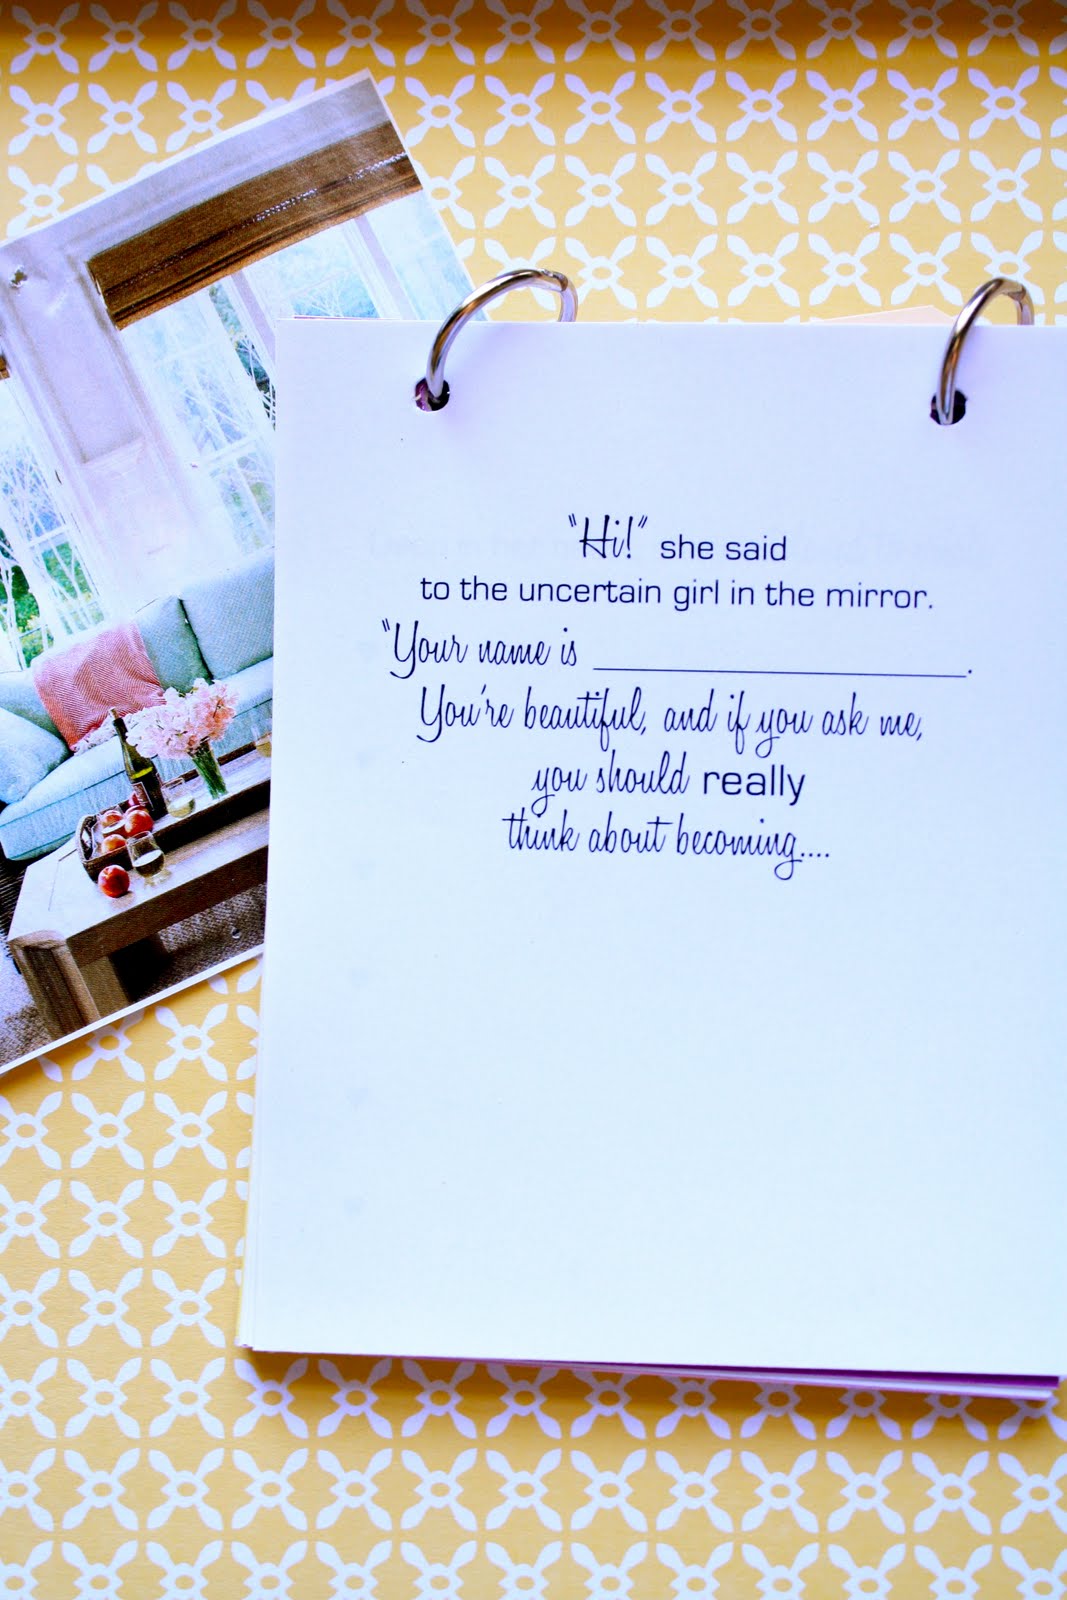 "Hi!" she said
to the uncertain girl in the mirror.
"Your name is ____________________.
You're beautiful, and if you ask me,
you should really
think about becoming....